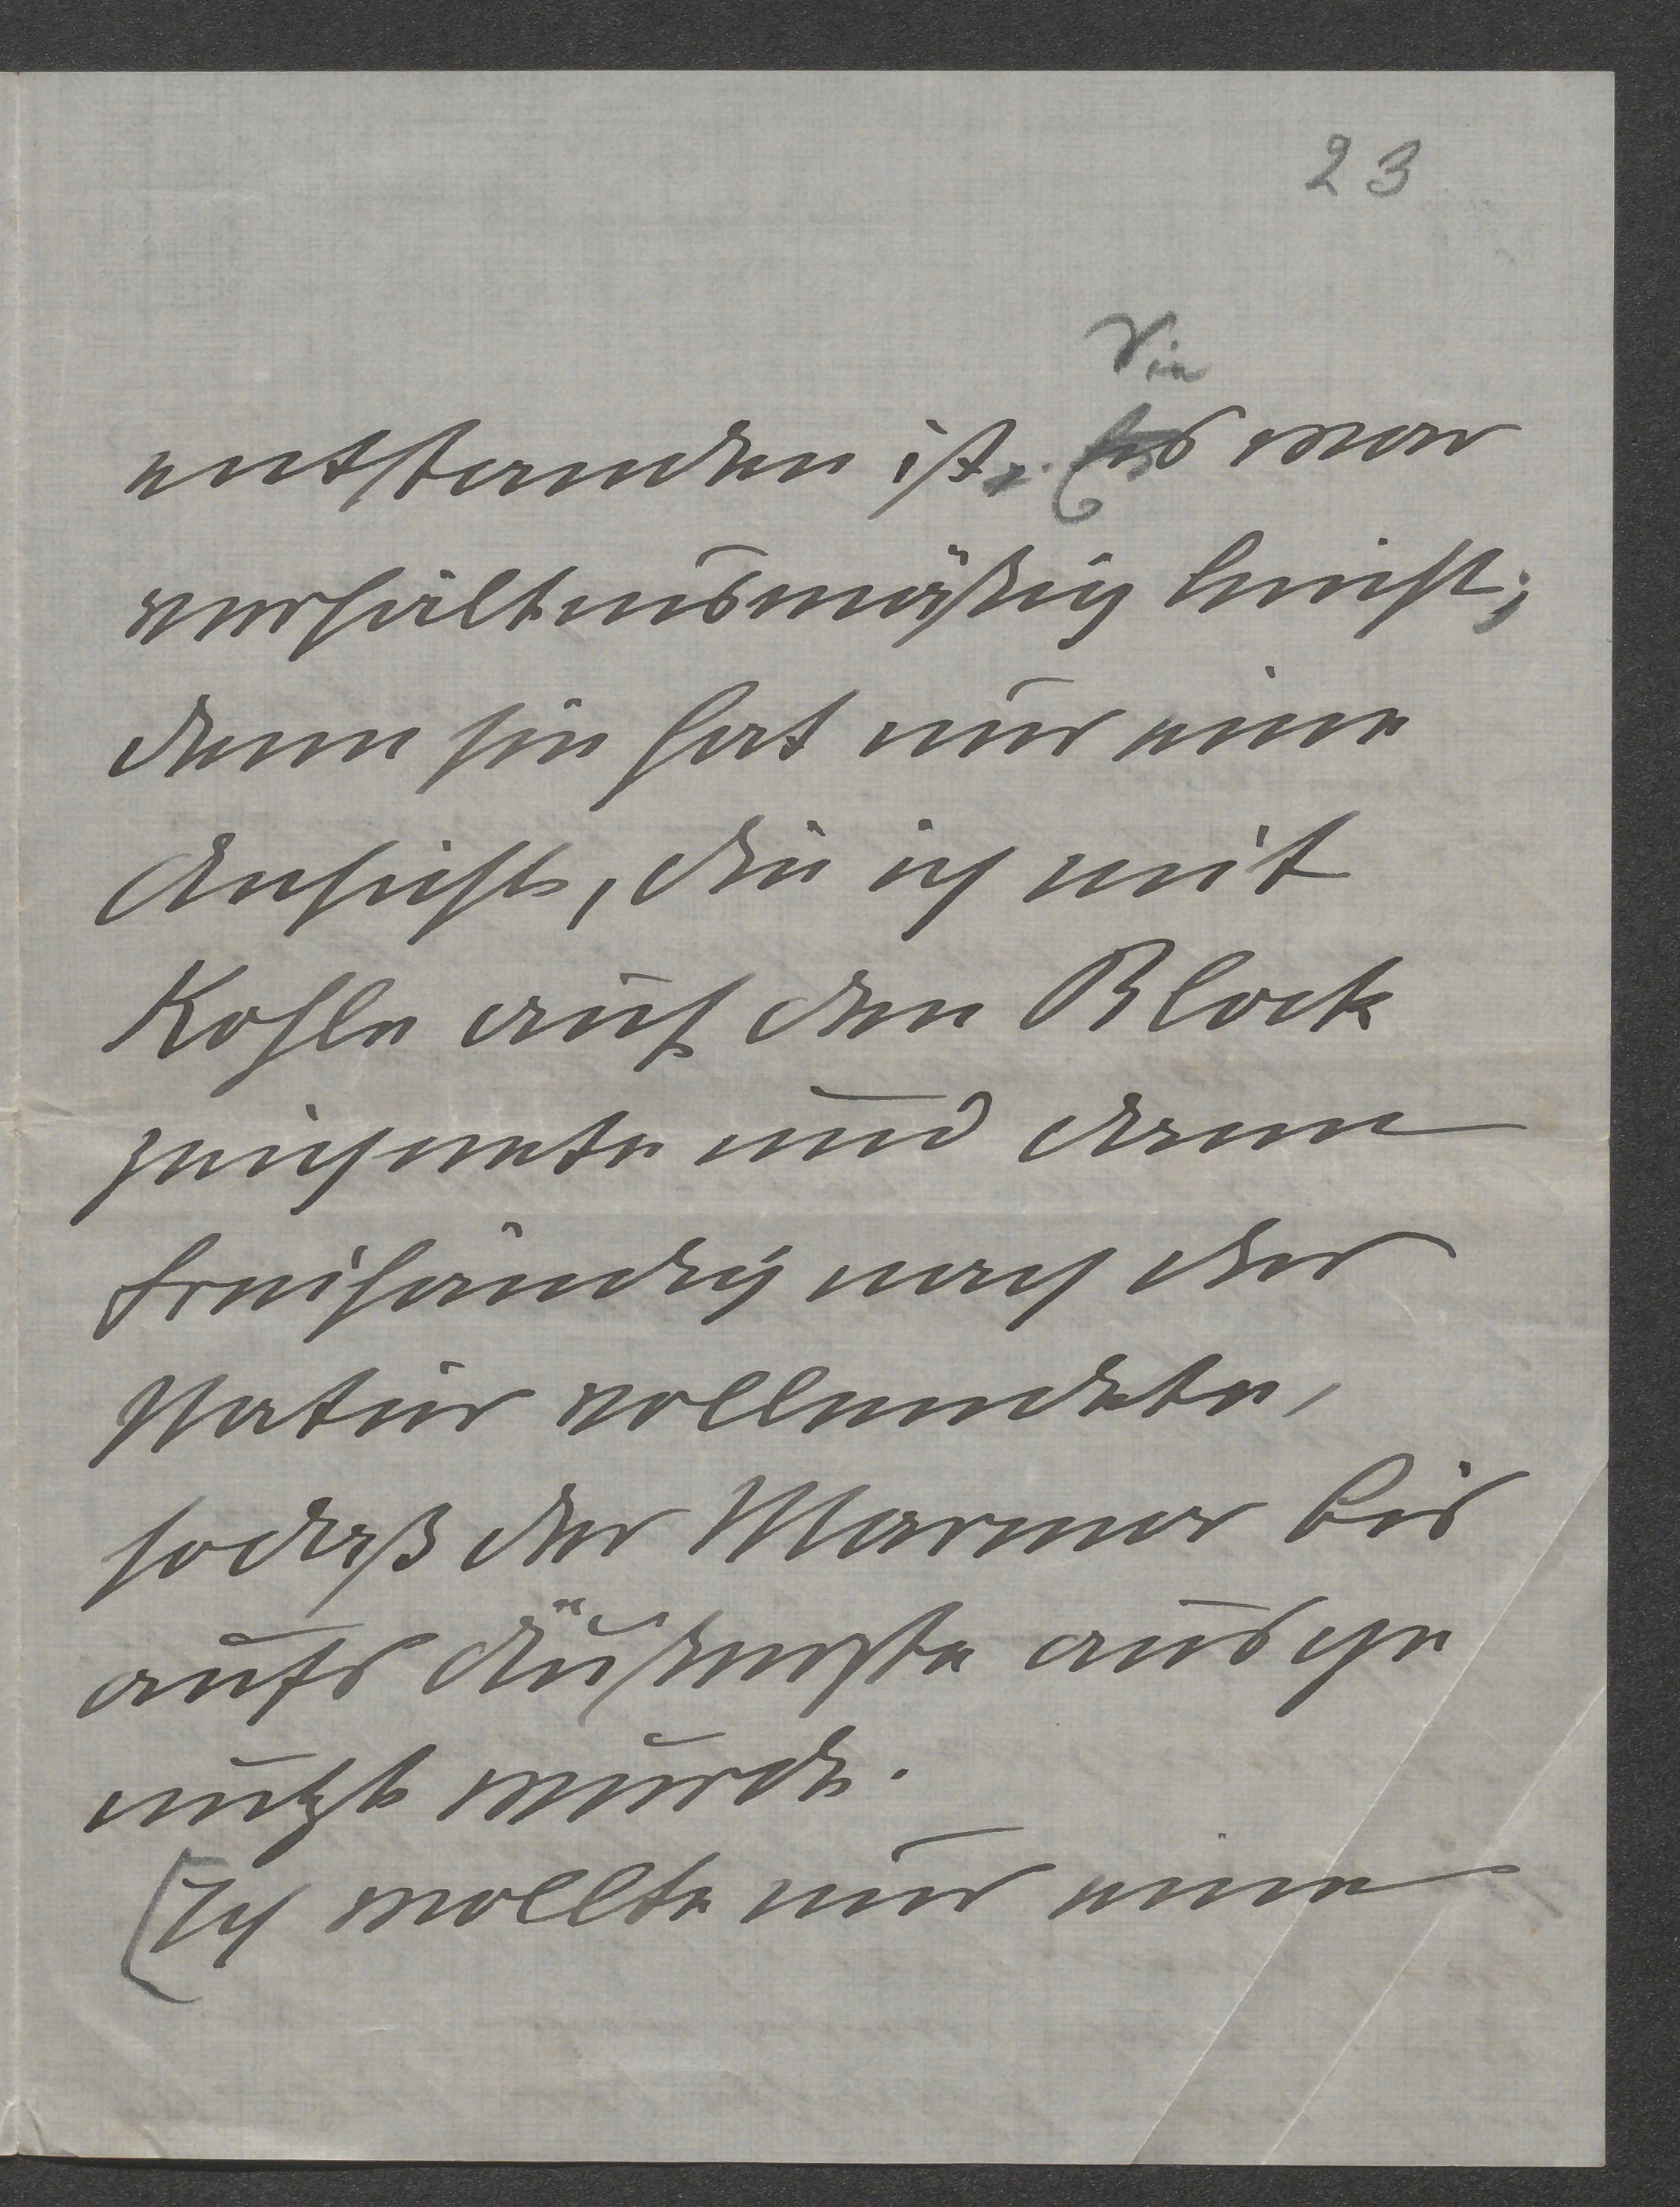 23
Sie
entstanden ist. Es war
verhältnismäßig leicht;
denn sie hat nur eine
Ansicht, die ich mit
Kohle auf den Block
zeichnete und dann
freihändig nach der
Natur vollendete,
sodaß der Marmor bis
aufs Äußerste ausge
nützt wurde.
[Ich wollte nur eine